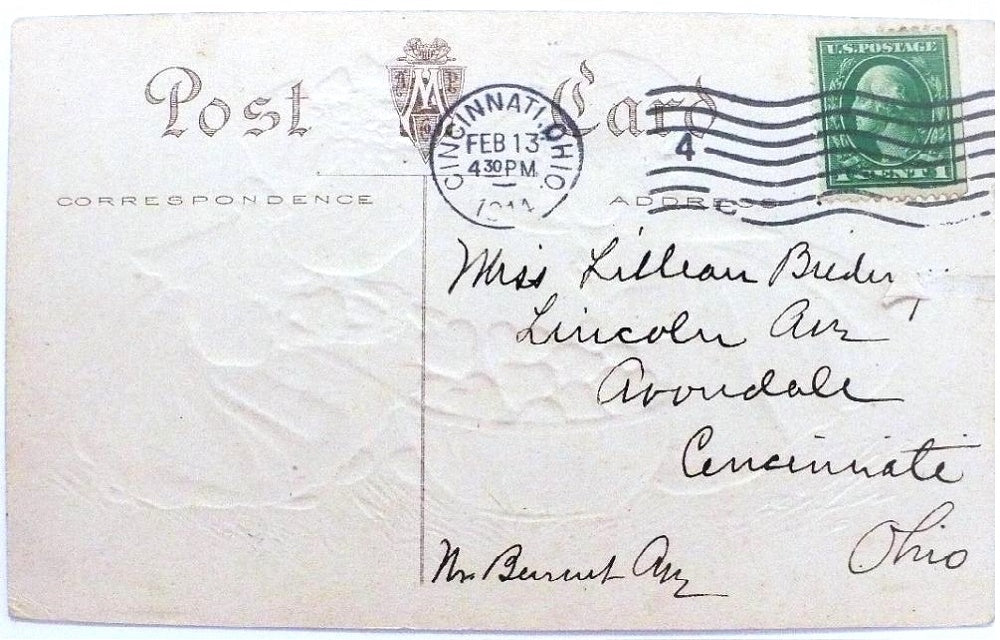 Post Card
A M P
Co
CINCINNATI, OHIO
FEB 13
4 30 PM
1914
4
C
U.S. POSTAGE
1 CENT 1
CORRESPONDENCE
ADDRESS
Miss Lillian Bieder
Lincoln Ave
Avondale
Cincinnati
Ohio
Nr. Burnet Ave